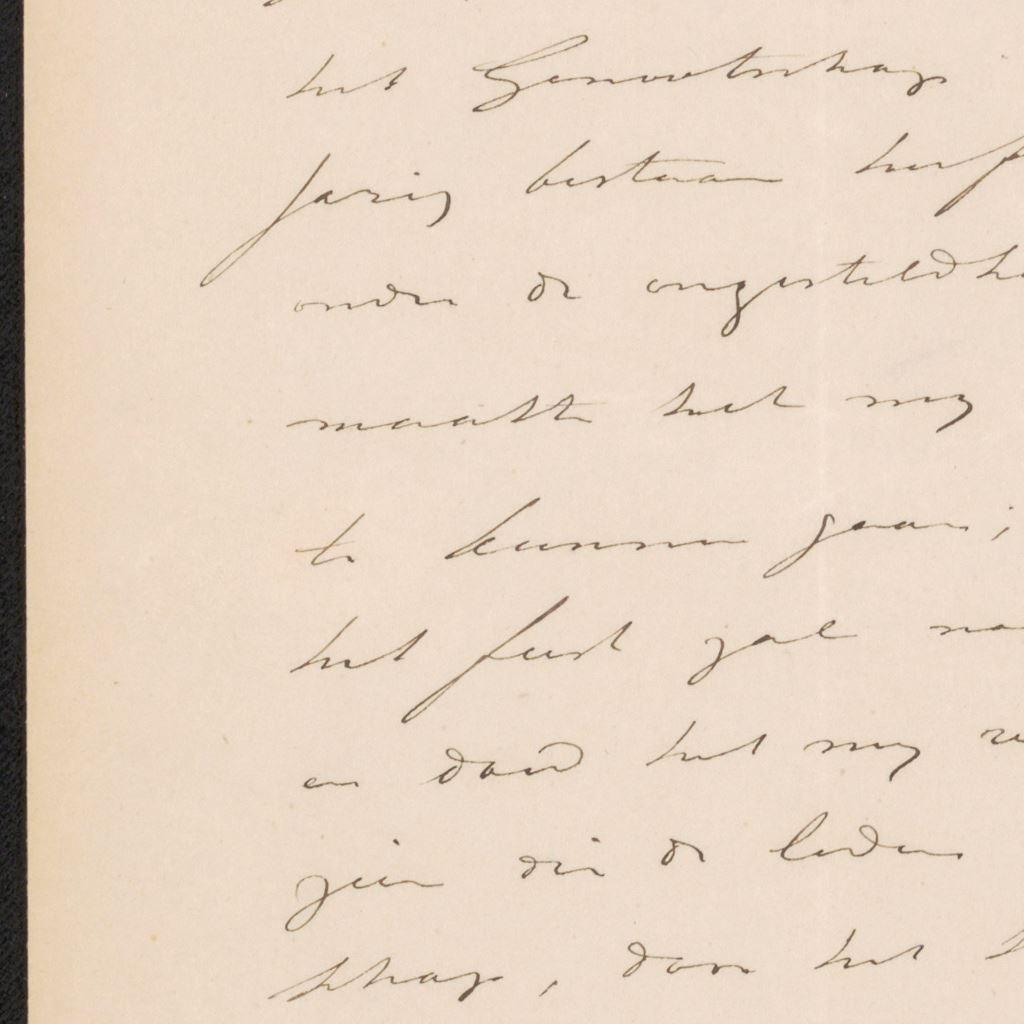 het Genootschap
jarig bestaan heef
onder de ongesteldhe
maakte het my
te kunnen gaan;
het feest zal
en doed het my
zien die de leden
schap, door het